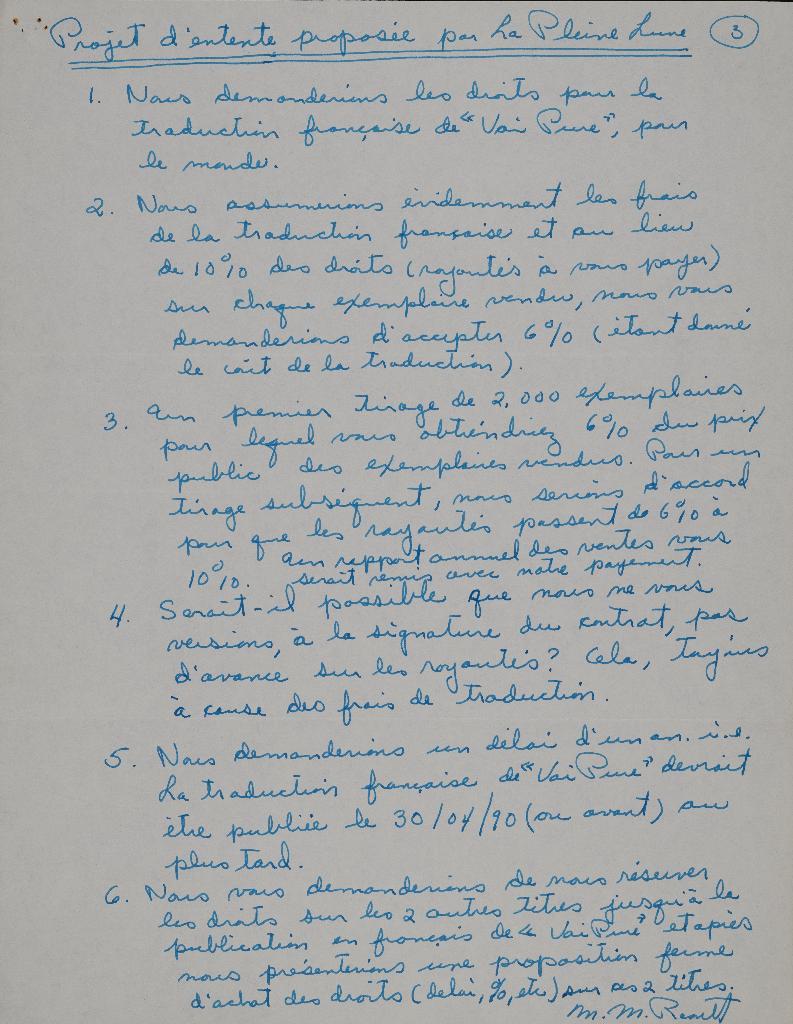 Projet d'entente proposée par La Pleine Lune 3
1. Nous demanderions les droits pour la
traduction française de "Vai Pure", pour
le monde.
2. Nous assumerions évidemment les frais
de la traduction française et au lieu
de 10% des droits (royautés à vous payer)
sur chaque exemplaire vendu, nous vous
demanderions d'accepter 6% (étant donné
le coût de la traduction).
3. Un premier tirage de 2,000 exemplaires
pour lequel vous obtiendriez 6% du prix
public des exemplaires vendus. Pour un
tirage subséquent, nous serions d'accord
pour que les royautés passent de 6% à
10%. Un rapport annuel des ventes vous
serait remis avec notre payement.
4. Serait-il possible que nous ne vous
versions, à la signature du contrat, pas
d'avance sur les royautés? Cela, toujours
à cause des frais de traduction.
5. Nous demanderions un délai d'un an. i.e.
La traduction française de "Vai Pure" devrait
être publiée le 30/04/90 (ou avant) au
plus tard.
6. Nous vous demanderions de nous réserver
les droits sur les 2 autres titres jusqu'à la
publication en français de "Vai Pure" et après
nous présenterions une proposition ferme
d'achat des droits (délai, %, etc) sur ces 2 titres.
M. M.